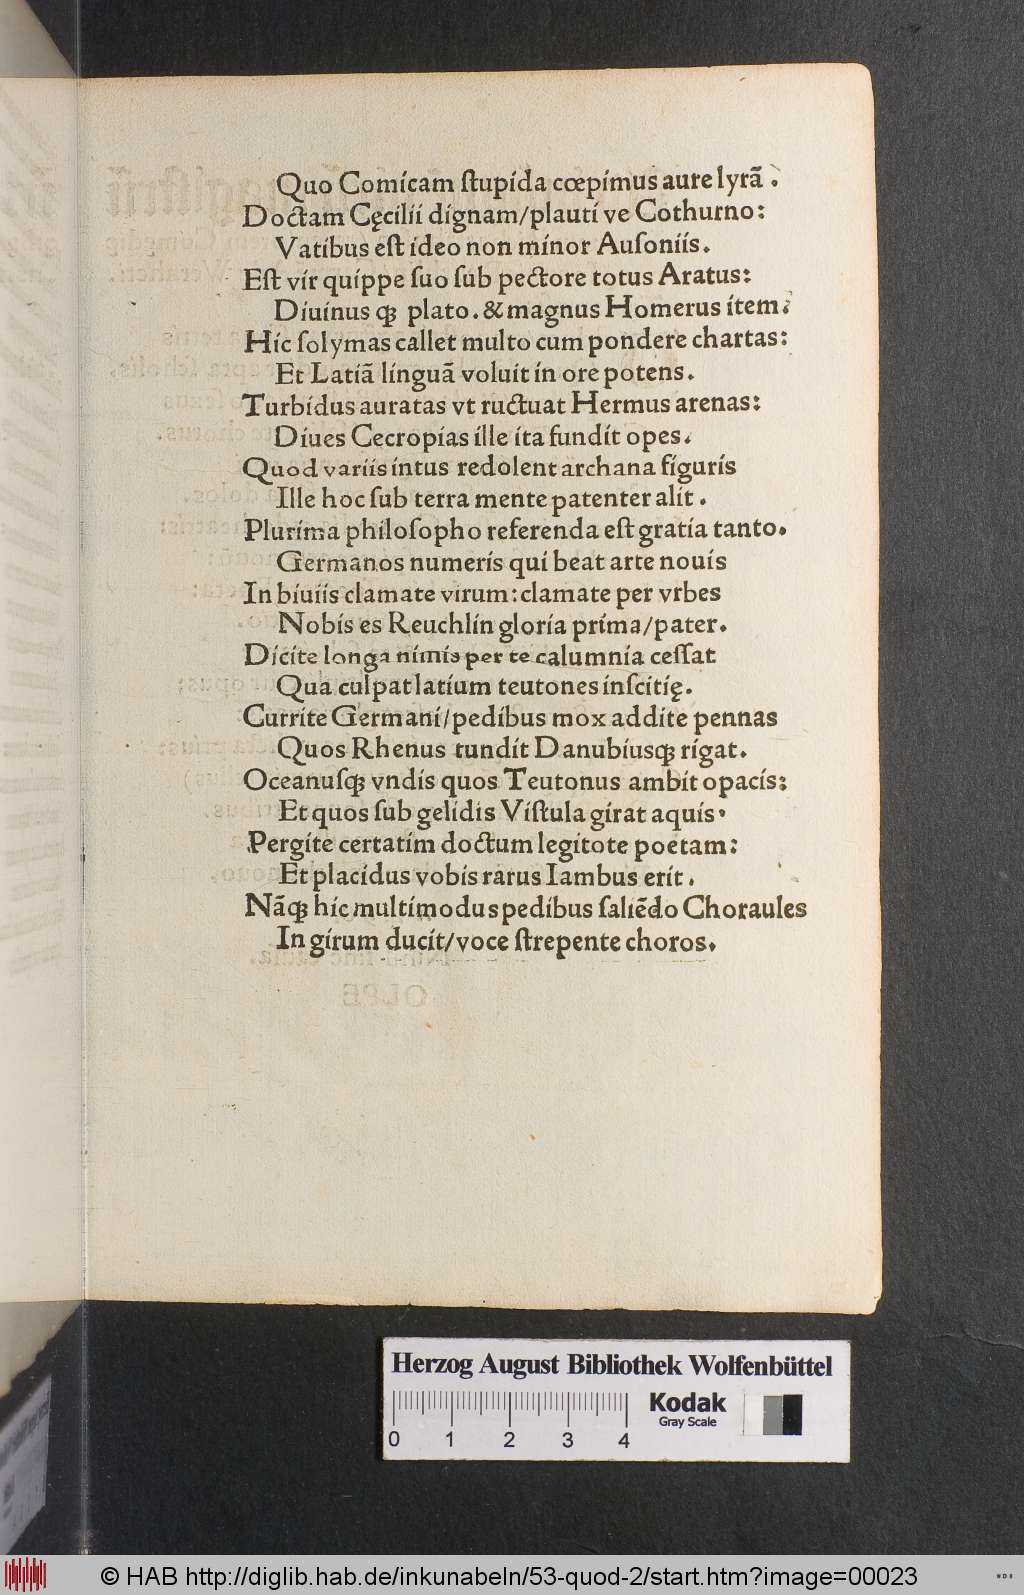 Quo Comicam ſtupida cœpimus aure lyrã.
Doctam Cęcilii dignam/plauti ve Cothurno:
Vatibus eſt ideo non minor Auſoniis.
Eſt vir quippe ſuo ſub pectore totus Aratus:
Diuinus qꝫ plato. & magnus Homerus item.
Hic ſolymas callet multo cum pondere chartas:
Et Latiã linguã voluit in ore potens.
Turbidus auratas vt ructuat Hermus arenas:
Diues Cecropias ille ita fundit opes.
Quod variis intus redolent archana figuris
Ille hoc ſub terra mente patenter alit.
Plurima philoſopho referenda eſt gratia tanto.
Germanos numeris qui beat arte nouis
In biuiis clamate virum: clamate per vrbes
Nobis es Reuchlin gloria prima/pater.
Dicite longa nimis per te calumnia ceſſat
Qua culpat latium teutones inſcitię.
Currite Germani/pedibus mox addite pennas
Quos Rhenus tundit Danubiusqꝫ rigat.
Oceanuſqꝫ vndis quos Teutonus ambit opacis:
Et quos ſub gelidis Viſtula girat aquis.
Pergite certatim doctum legitote poetam:
Et placidus vobis rarus Iambus erit.
Nãqꝫ hic multimodus pedibus ſaliẽdo Choraules
In girum ducit/voce ſtrepente choros.
Herzog August Bibliothek Wolfenbüttel
Kodak
Gray Scale
0 1 2 3 4
© HAB http://diglib.hab.de/inkunabeln/53-quod-2/start.htm?image=00023